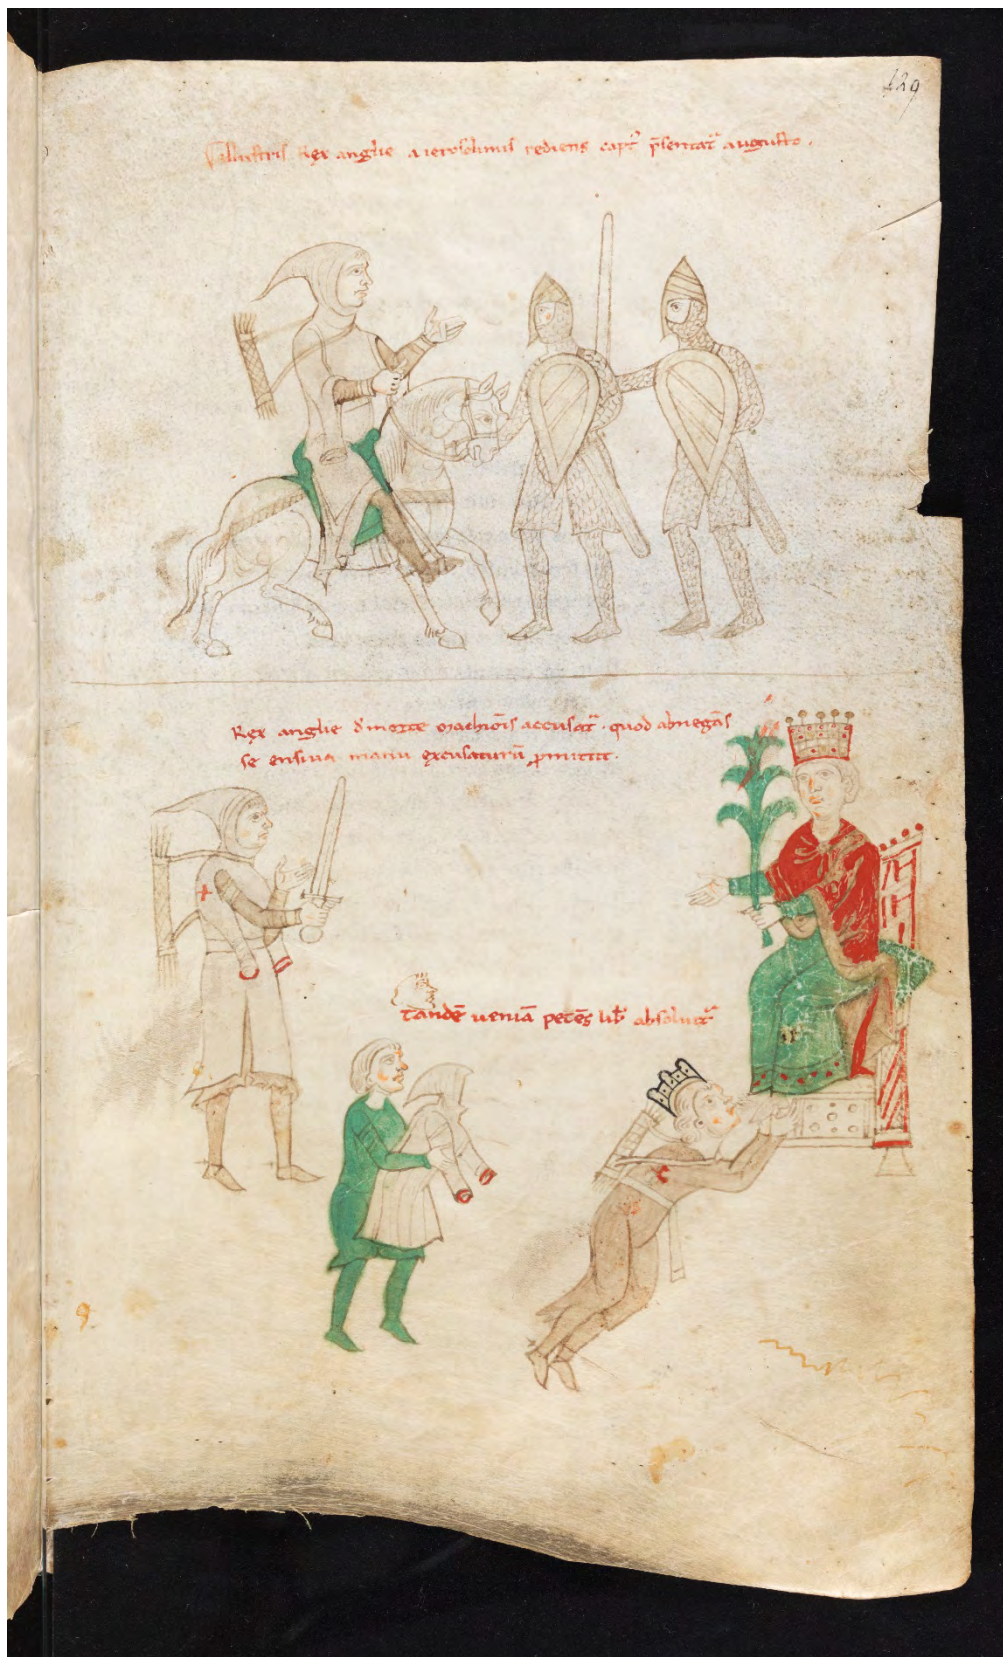 129
Illustris Rex anglie a ierosolimis rediens capt᷒ p̄sentat᷒ augusto.
Rex anglie d̓ morte marchiōis accusat᷒. quod abnegās
se ensiua manu excusaturū ꝓmittit.
tandē ueniā petēs lib̓ absoluit᷒